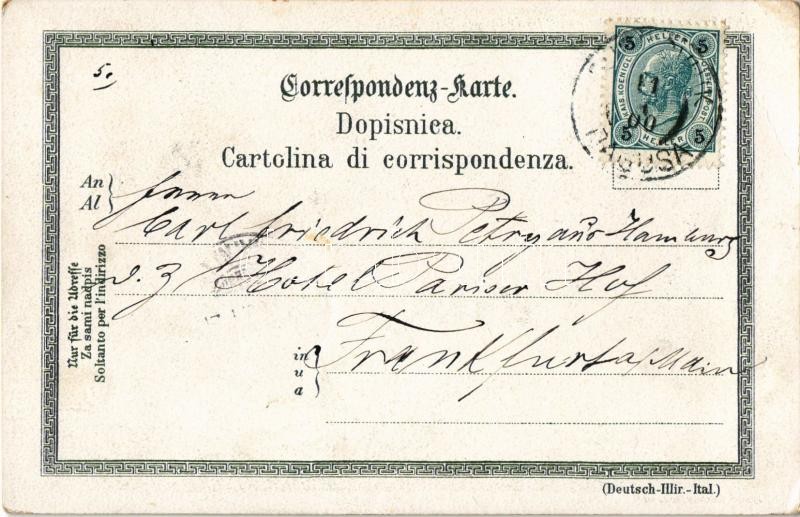 5.
Correspondenz-Karte.
Dopisnica.
Cartolina di corrispondenza.
An
Al
Herrn
Carl Friedrich Petry aus Hamburg
d. Z. Hotel Pariser Hof
in
u
a
Frankfurt a/Main
Nur für die Adresse
Za sami nadpis
Soltanto per l'indirizzo
5 HELLER 5
KAIS. KOENIGL.
5 HELLER 5
(Deutsch-Illir.-Ital.)